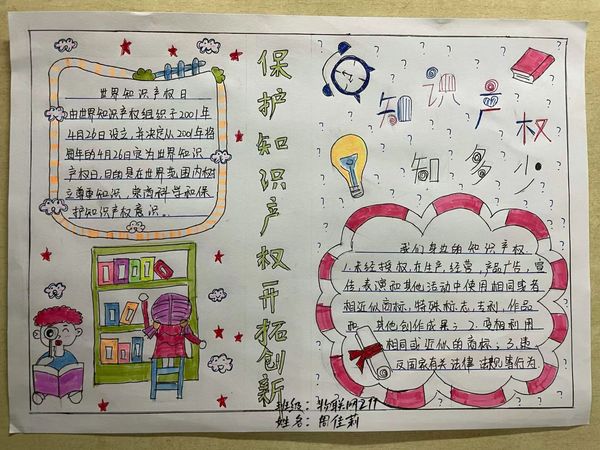 世界知识产权日
由世界知识产权组织于2001年
4月26日设立,并决定从2001年将
每年的4月26日定为世界知识
产权日,目的是在世界范围内树
立尊重知识,崇尚科学和保
护知识产权意识。
保护知识产权开拓创新
知识产权
知多少
我们身边的知识产权
1.未经授权,在生产,经营,产品广告,宣
传,表演和其他活动中使用相同或者
相近似商标,特殊标志,专利,作品
和其他创作成果;2.变相利用
相同或近似的商标;3.违
反国家有关法律法规等行为.
班级:物联网211
姓名:周佳莉